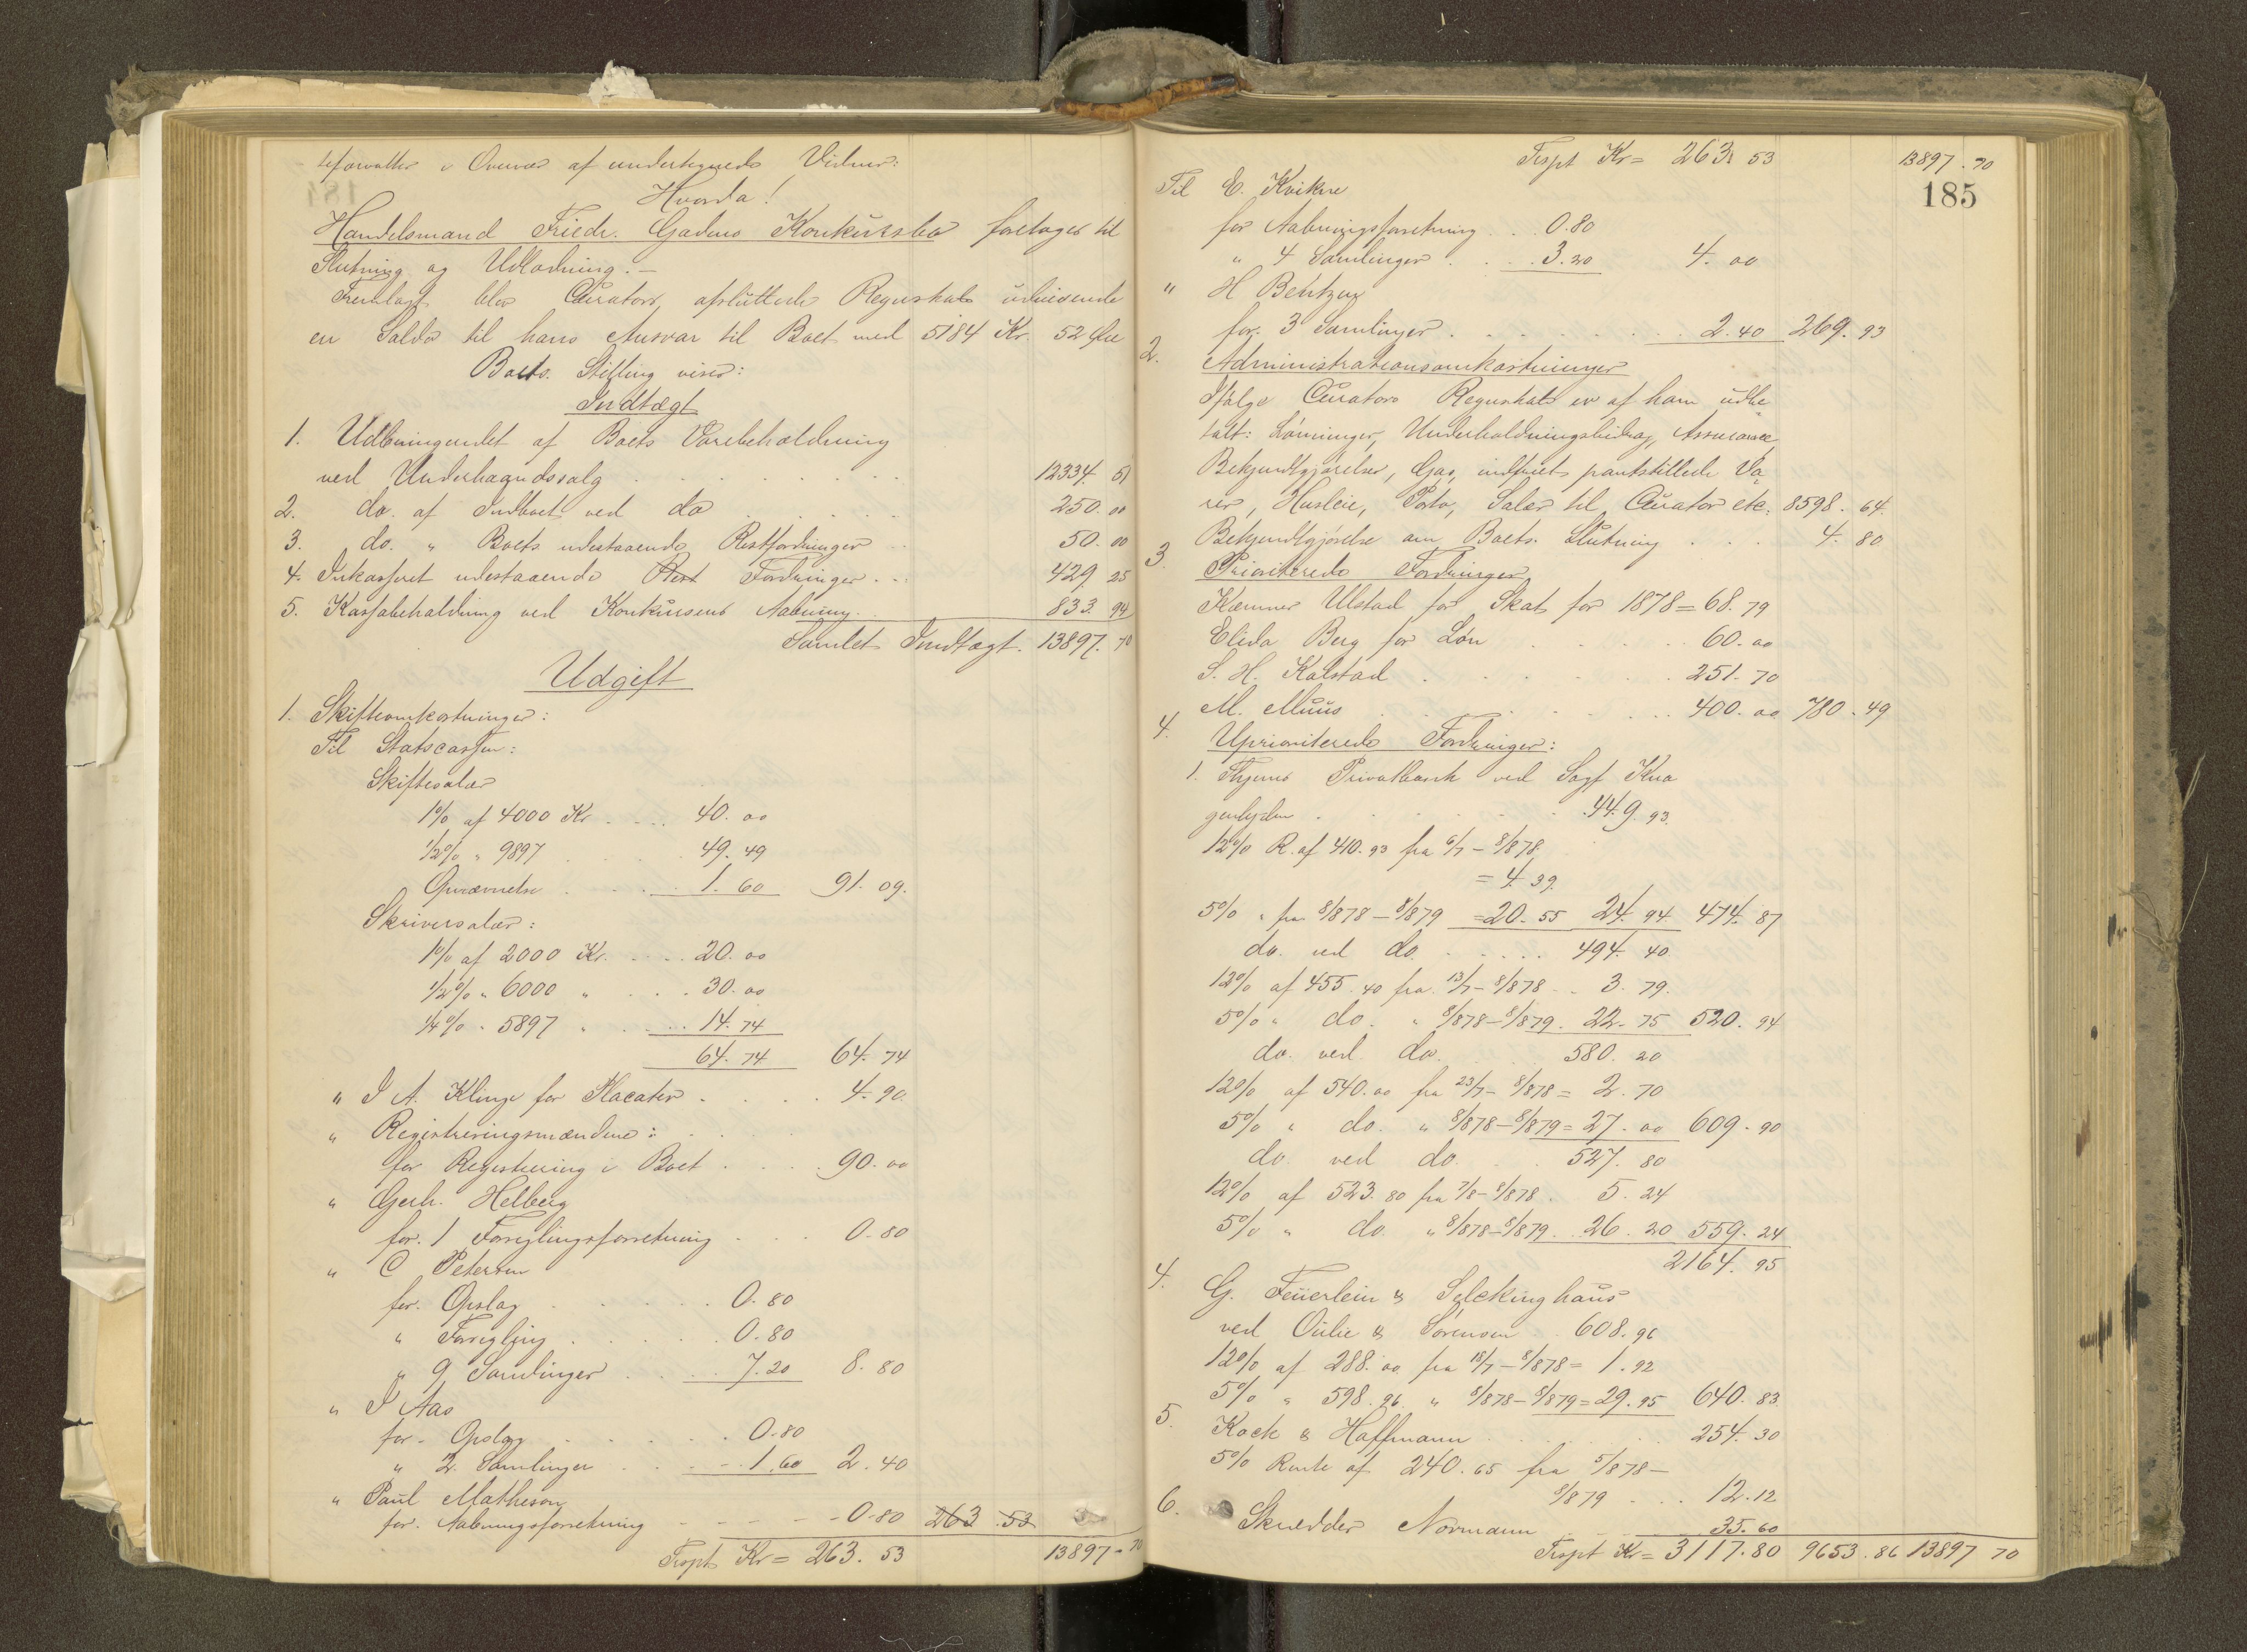 teforvalter i Overvær af undertegnede Vidner:
Hvorda!
Handelsmand Friedr. Gadens Konkursbo foretages til
Slutning og Udlodning. —
Fremlagt blev Curators afsluttede Regnskab udvisende
en Saldo til hans Ansvar til Boet med 5184 Kr. 52 Øre
Boets Stilling viser:
Indtægt
1. Udbringendet af Boets Varebeholdning
ved Underhaandssalg 12334. 51
2. do. af Indboet ved do 250. 00
3. do. " Boets udestaaende Restfordringer 50. 00
4. Inkasseret udestaaende Rest Fordringer 429 25
5. Kassabeholdning ved Konkursens Aabning 833. 94
Samlet Indtægt 13897. 70
Udgift
1. Skifteomkostninger:
Til Statscassen:
Skiftesalær
1% af 4000 Kr 40. 00
1/2% " 9897 49. 49
Opnævnelse 1. 60 91. 09.
Skriversalær:
1% af 2000 Kr. 20. 00
1/2% " 6000 " 30. 00
1/4% " 5897 " 14. 74
64. 74 64. 74
" I A. Klinge for Placater 4. 90
" Registreringsmændene:
for Registrering i Boet 90. 00
" Gerh. Helberg
for. 1 Forseglingsforretning 0. 80
" C Petersen
for. Opslag 0. 80
" Forsegling 0. 80
" 9 Samlinger 7. 20 8. 80
" I Aas
for. Opslag 0. 80
" 2. Samlinger 1. 60 2. 40
" Paul Matheson
for. Aabningsforretning 0. 80 263. 53
Trspt Kr = 263. 53 13897 - 70
Trspt Kr = 263. 53 13897. 70
185
Til E. Kvikne
for Aabningsforretning 0. 80
" 4 Samlinger 3. 20 4. 00
" H Bentzen
for. 3 Samlinger 2. 40 269. 93
2. Administrationsomkostninger
Ifølge Curators Regnskab er af ham udbe
talt: Lønninger, Underholdningsbidrag, Assurance,
Bekjendtgjørelser, Gas, indfriet pantstillede Va
rer, Husleie, Porto, Salær til Curator etc. 8598. 64.
Bekjendtgjørelse om Boets Slutning 4. 80
3. Prioriterede Fordringer
Kæmner Ulstad for Skat for 1878 = 68. 79
Elida Berg for Løn 60. 00
S. H. Kalstad 251. 70
M. Muus 400. 00 780. 49
4. Uprioriterede Fordringer:
1. Thjems Privatbank ved Sagf Kna
genhjelm 449. 93.
12% R. af 410. 93 fra 6/7 - 8/8 78.
= 4. 39.
5% " fra 8/8 78 - 8/8 79 = 20. 55 24. 94 474. 87
do. ved do. 494. 40
12% af 455. 40 fra 13/7 - 8/8 78 3. 79.
5% " do. " 8/8 78 - 8/8 79. 22. 75 520. 94
do. ved do. 580. 20
12% af 540. 00 fra 23/7 - 8/8 78 = 2. 70
5% " do. " 8/8 78 - 8/8 79 = 27. 00 609. 90
do. ved do. 527. 80
12% af 523. 80 fra 7/8 - 8/8 78. 5. 24
5% " do. " 8/8 78 - 8/8 79. 26. 20 559. 24
2164. 95
4. G. Feuerlein & Selckinghaus
ved Oulie & Sørensen 608. 96
12% af 288. 00 fra 18/7 - 8/8 78 = 1. 92
5% " 598. 96. " 8/8 78 - 8/8 79 = 29. 95 640. 83.
5. Kock & Hoffmann 254. 30
5% Rente af 240. 65 fra 5/8 78 -
8/8 79 12. 12
6. Skrædder Normann 35. 60
Trspt Kr = 3117. 80 9653. 86 13897 70